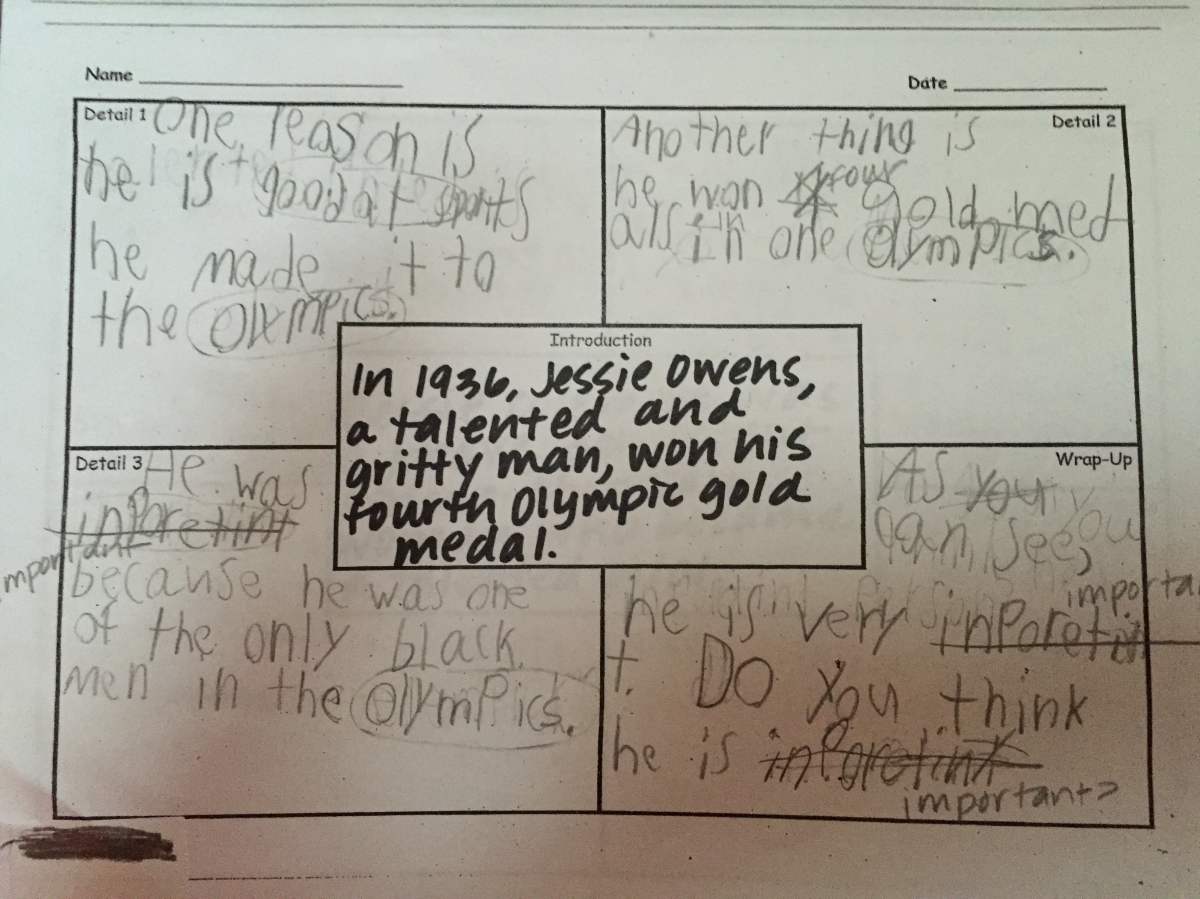 Name
Date
Detail 1
One reason is
he is good at sports
he made it to
the Olympics.
Detail 2
Another thing is
he won four gold med
als in one Olympics.
Introduction
In 1936, Jessie Owens,
a talented and
gritty man, won his
fourth Olympic gold
medal.
Detail 3
He was
inporetint
important
because he was one
of the only black
men in the Olympics.
Wrap-Up
As you
can see,
he is very inporetin important
t. Do you think
he is inporetint
important?